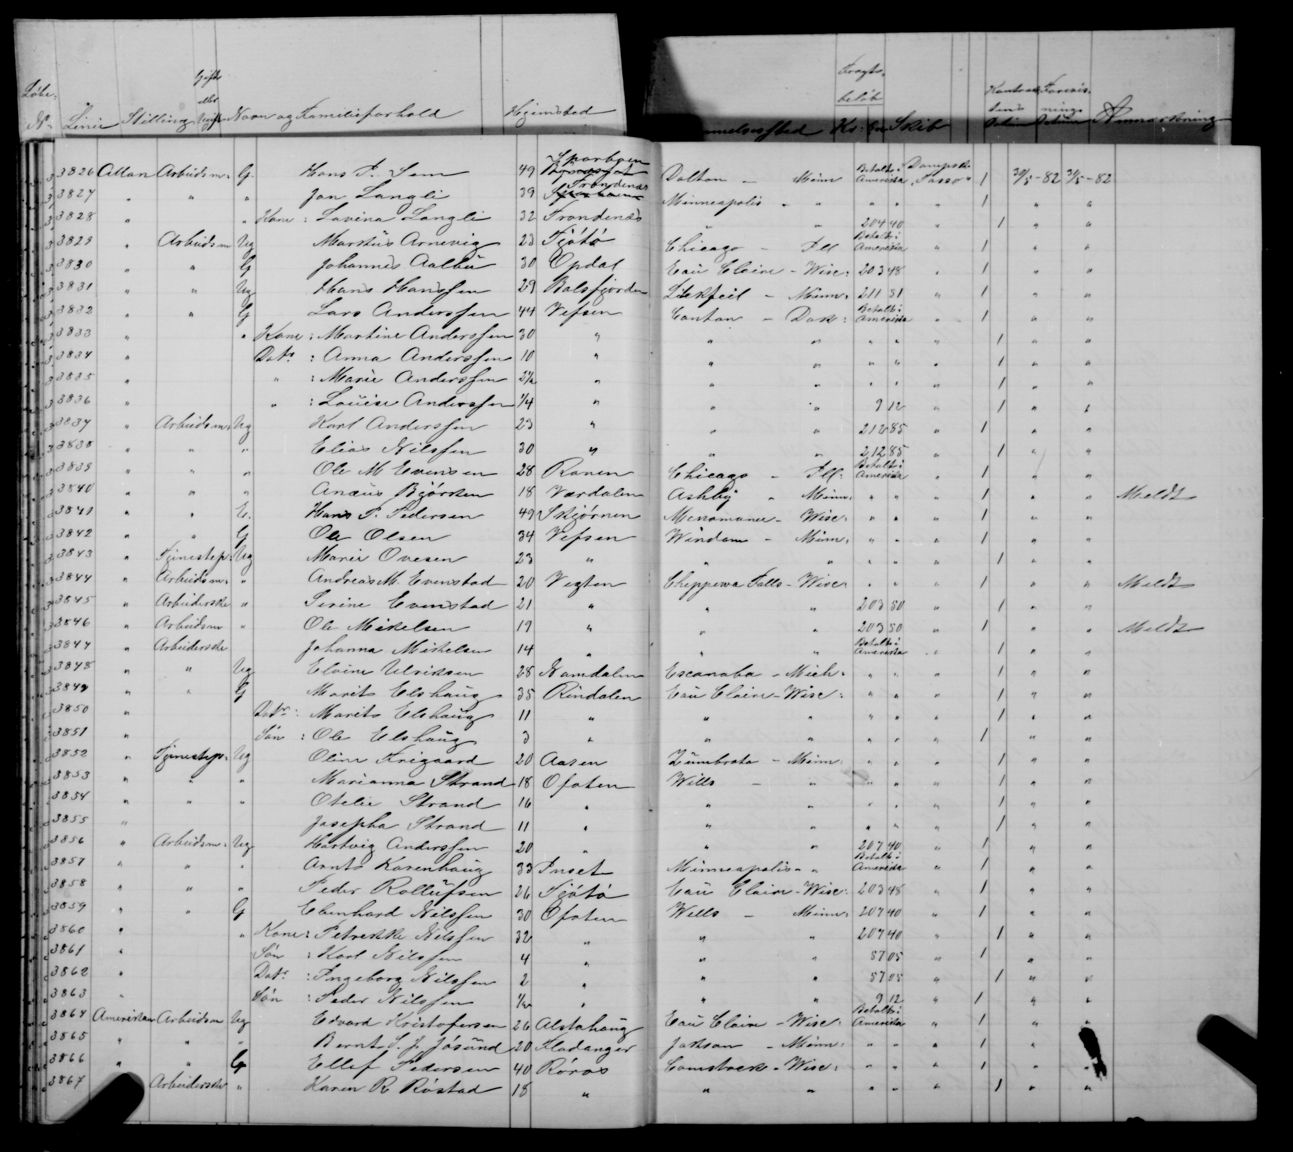 Løbe- Gift
eller Fragt-
beløb
No Linie Stilling Ugift Navn og Familieforhold Hjemstad Kr: Øre Skib Anmærkning
3826 Allan Arbeidsm. G. Hans P. Sem 49 Sparboen Dalton - Minn Betalt i Amerika Dampsk. Tasso 1 30/5-82 3/5-82
3827 " " " Jon Langli 39 Trondenæs Minneapolis " " " " " 1 " "
3828 " " Kone: Lavina Langli 32 Trondenæs " " 204 40 " 1 " "
3829 " Arbeidsm Ug Marstius Arnevig 23 Tjøtø Chicago - Ill Betalt i Amerika " 1 " "
3830 " " G Johannes Aalbu 30 Opdal Eau Claire - Wisc: 203 48 " 1 " "
3831 " " Ug Hans Hanssen 29 Balsfjorden Litchfeil - Minn: 211 81 " 1 " "
3832 " " G Lars Anderssen 44 Vefsen Canton - Dak: Betalt i Amerika " 1 " "
3833 " " Kone: Martine Anderssen 30 " " " " " " 1 " "
3834 " Datr: Anna Anderssen 10 " " " " " " 1 " "
3835 " " : Marie Anderssen 2½ " " " " " " 1 " "
3836 " " : Louise Anderssen ¼ " " " 9 12 " 1 " "
3837 " Arbeidsm: Ug Karl Anderssen 23 " " " 212 85 " 1 " "
3838 " " " Elias Nilssen 30 " " " 212 85 " 1 " "
3839 " " " Ole M Evensen 28 Ranen Chicago - Ill: Betalt i Amerika " 1 " "
3840 " " " Anæus Bjørken 18 Værdalen Ashby " Minn: " " " 1 " " Meldt
3841 " " E. Hans P. Pedersen 49 Skjørnen Menomonee - Wisc: " " " 1 " "
3842 " " G Ole Olsen 34 Vefsen Windom - Minn: " " " 1 " "
3843 " Tjenestep: Ug Marie Ovesen 23 " " " " " " 1 " "
3844 " Arbeidsm: " Andreas M Evenstad 20 Vegten Chippewa Falls - Wisc: " " " 1 " " Meldt
3845 " Arbeiderske " Serine Evenstad 21 " " " 203 80 " 1 " "
3846 " Arbeidsm " Ole Mikelsen 19 " " " 203 80 " 1 " " Meldt
3847 " Arbeiderske Johanna Mikelsen 14 " " " Betalt i Amerika " 1 " "
3848 " " Ug Elvine Ulriksen 28 Namdalen Escanaba - Mich: " " " 1 " "
3849 " " G Marit Elshaug 35 Rindalen Eau Claire - Wisc: " " " 1 " "
3850 " Datr: Marit Elshaug 11 " " " " " " 1 " "
3851 " Søn: Ole Elshaug 3 " " " " " " 1 " "
3852 " Tjenestep: Ug Oline Frigaard 20 Aasen Zumbrota - Minn: " " " 1 " "
3853 " " " Marianna Strand 18 Ofoten Wills - " " " " 1 " "
3854 " " " Otelie Strand 16 " " " " " " 1 " "
3855 " Josepha Strand 11 " " " " " " 1 " "
3856 " Arbeidsm: Ug Hartvig Anderssen 20 " " " 207 40 " 1 " "
3857 " " " Arnt Korenhaug 33 Inset Minneapolis - " Betalt i Amerika " 1 " "
3858 " " " Peder Rollufsen 26 Tjøtø Eau Claire - Wisc: 203 48 " 1 " "
3859 " " G Ebenhard Nilssen 30 Ofoten Wills - Minn: 207 40 " 1 " "
3860 " " Kone: Petrikke Nilssen 32 " " " 207 40 " 1 " "
3861 " Søn : Karl Nilssen 4 " " " 57 05 " 1 " "
3862 " Datr: Ingeborg Nilssen 2 " " " 57 05 " 1 " "
3863 " Søn : Peder Nilssen ½ " " " 9 12 " 1 " "
3864 Amerikan Arbeidsm Ug Edvard Kristofersen 26 Alstahaug Eau Claire - Wisc: Betalt i Amerika " 1 " "
3865 " " " Bernt S. J. Jøsund 20 Fladanger Jakson - Minn: " " " 1 " "
3866 " " G Ellef Pedersen 40 Røros Comstock - Wisc: " " " 1 " "
3867 Arbeiderske " Karen R Røstad 18 " " " " " " 1 " "